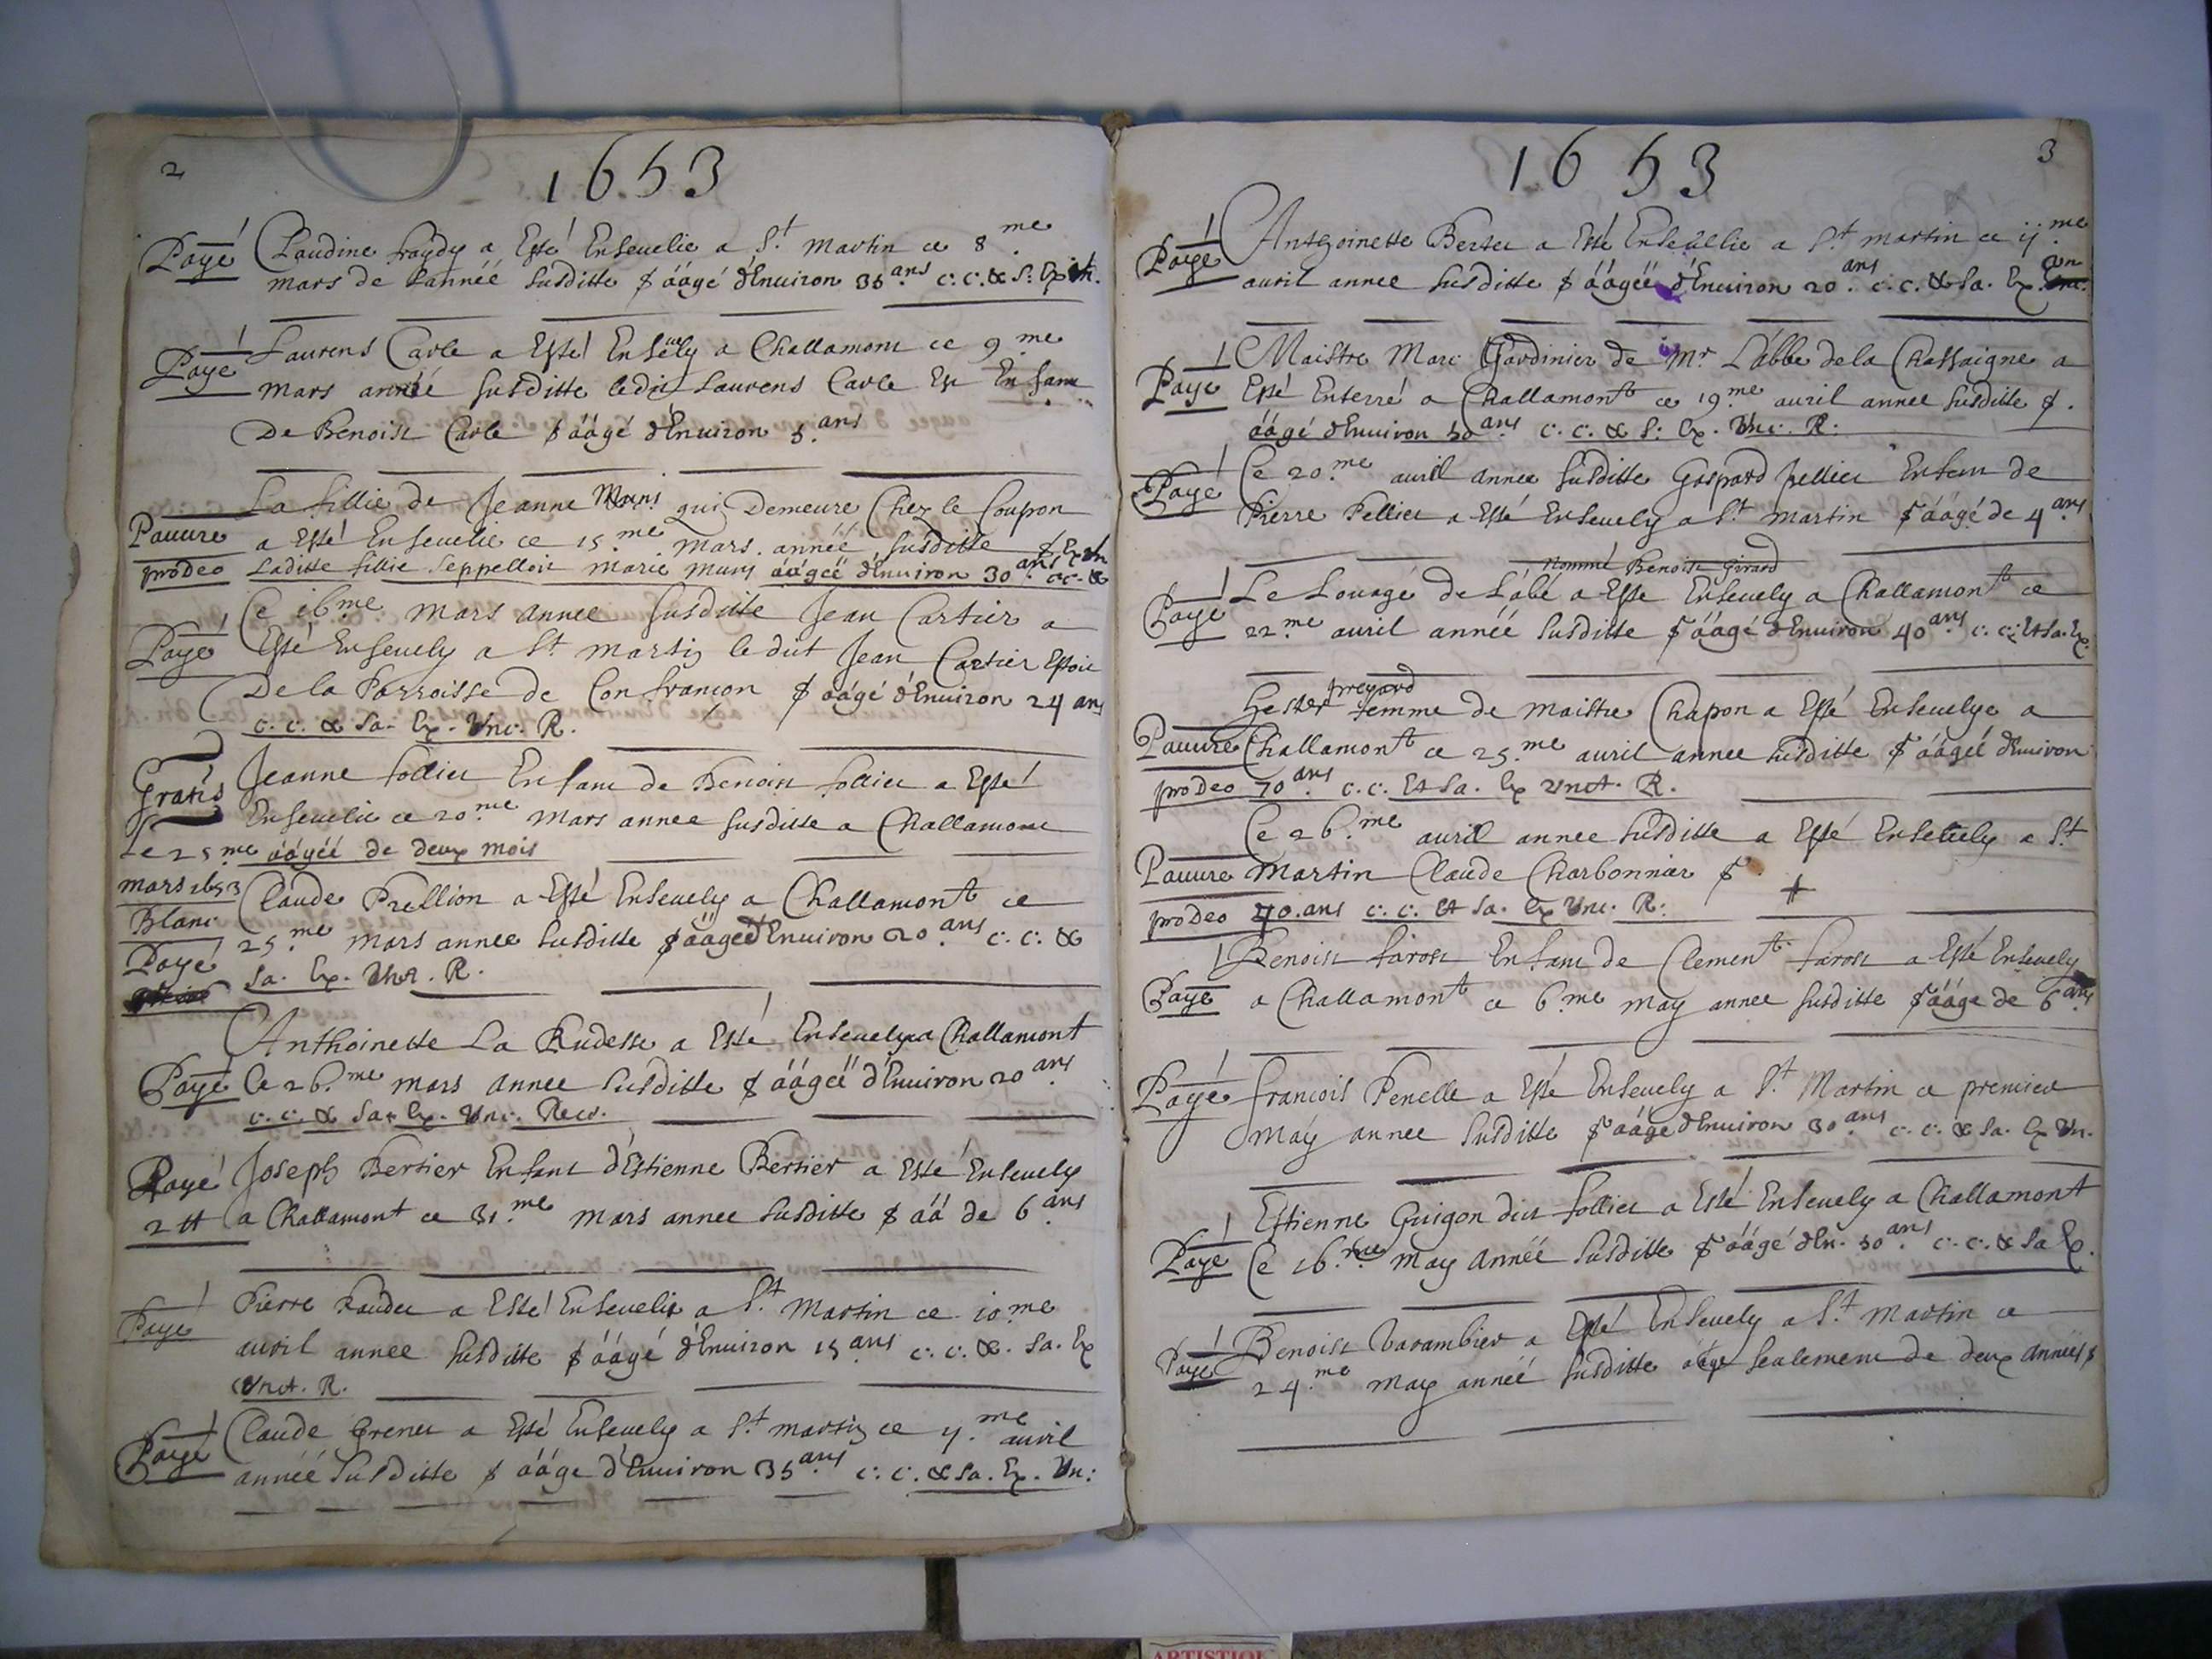 2
1653
Payé Claudine fraydy a Esté Ensevelie a St. martin ce 8.me
mars de Lannéé susditte $ áágé d'Enuiron 35.ans c. c. & S. Ex. Vn.
Payé Laurens Carle a Esté Ensevely a Challamont ce 9.me
mars annéé susditte ledit Laurens Carle Est Enfant
De Benoist Carle $ áágé d'Enuiron 5.ans
La fillie de Jeanne Muns qui Demeure Chez le Coupon
Pauure a Esté Enseuelie ce 15.me mars annéé susditte $ Ex. Vn
pro deo Laditte fillie seppelloit Marie muns áágéé d'Enuiron 30.ans c. c. &
Ce 16.me Mars annee susditte Jean Cartier a
Payé Esté Enseuely a St. martin le dit Jean Cartier Estoit
De la Parroisse de Confrançon $ áágé d'Enuiron 24 ans
c. c. & Sa. Ex. Vnc. R.
Gratis Jeanne follier Enfant de Benoist follier a Esté
Enseuelie ce 20.me Mars annee susditte a Challamont
Le 25.me áágéé de deux mois
mars 1653 Claude Prellion a Esté Enseuely a Challamont ce
Blanc 25.me mars annee susditte $ áágé d'Enuiron 20.ans c. c. &
Payé Sa. Ex. Vnct. R.
Anthoinette La Rudesse a Esté Enseuelye a Challamont
Payé Ce 26.me mars annee susditte $ áágéé d'Enuiron 20.ans
c. c. & Sa. Ex. Vnc. Rec.
Payé Joseph Bertier Enfant d'Estienne Bertier a Esté Enseuely
2 tt a Challamont ce 31.me mars annee susditte $ áá de 6.ans
Payé Pierre a Esté Enseuely a St. martin ce 10.me
auril annee susditte $ áágé d'Enuiron 15.ans c. c. &. Sa. Ex
Vnct. R.
Payé Claude Grenet a Esté Enseuely a St. martin ce 11.me auril
annéé susditte $ áágé d'Enuiron 35.ans c. c. & Sa. Ex. Vn:
3
1653
Payé Anthoinette Bertet a Esté Enseuelie a St. martin ce 11.me
auril annee susditte $ áágéé d'Enuiron 20.ans c. c. & Sa. Ex. Vn
Payé Maistre Marc Gardinier de Mr. L'abbe de la Chassaigne a
Esté Enterré a Challamont ce 19.me auril annee susditte $.
áágé d'Enuiron 50.ans c. c. & S. Ex. Vnc. R.
Payé Ce 20.me auril annee susditte Gaspard pellier Enfant de
Pierre Pellier a Esté Enseuely a St. martin $ áágé de 4.ans
Nommé Benoist Girard
Payé Le Louagé de L'abé a Esté Enseuely a Challamont ce
22.me auril annéé susditte $ áágé d'Enuiron 40.ans c. c. Et Sa. Ex.
Hester preyard femme de maistre Chapon a Esté Enseuelye a
Pauure Challamont ce 25.me auril annee susditte $ áágéé d'Enuiron
pro deo 70.ans c. c. Et Sa. Ex Vnct. R.
Ce 26.me auril annee susditte a Esté Enseuely a St.
Pauure Martin Claude Charbonnier $
pro deo 40.ans c. c. Et Sa. Ex Vnc. R.
Benoist farost Enfant de Clement farost a Esté Enseuely
Payé a Challamont ce 6.me may annee susditte $ áágé de 6.ans
Payé francois Penelle a Esté Enseuely a St. Martin ce premier
May annee susditte $ áágé d'Enuiron 30.ans c. c. & Sa. Ex Vn.
Estienne Guigon dit follier a Esté Enseuely a Challamont
Payé Ce 16.me may annéé susditte $ áágé d'En. 50.ans c. c. & Sa Ex.
Payé Benoist Varambier a Esté Enseuely a St. martin ce
24.me may annéé susditte áágé seulement de deux annéés $
ARTISTIQUE